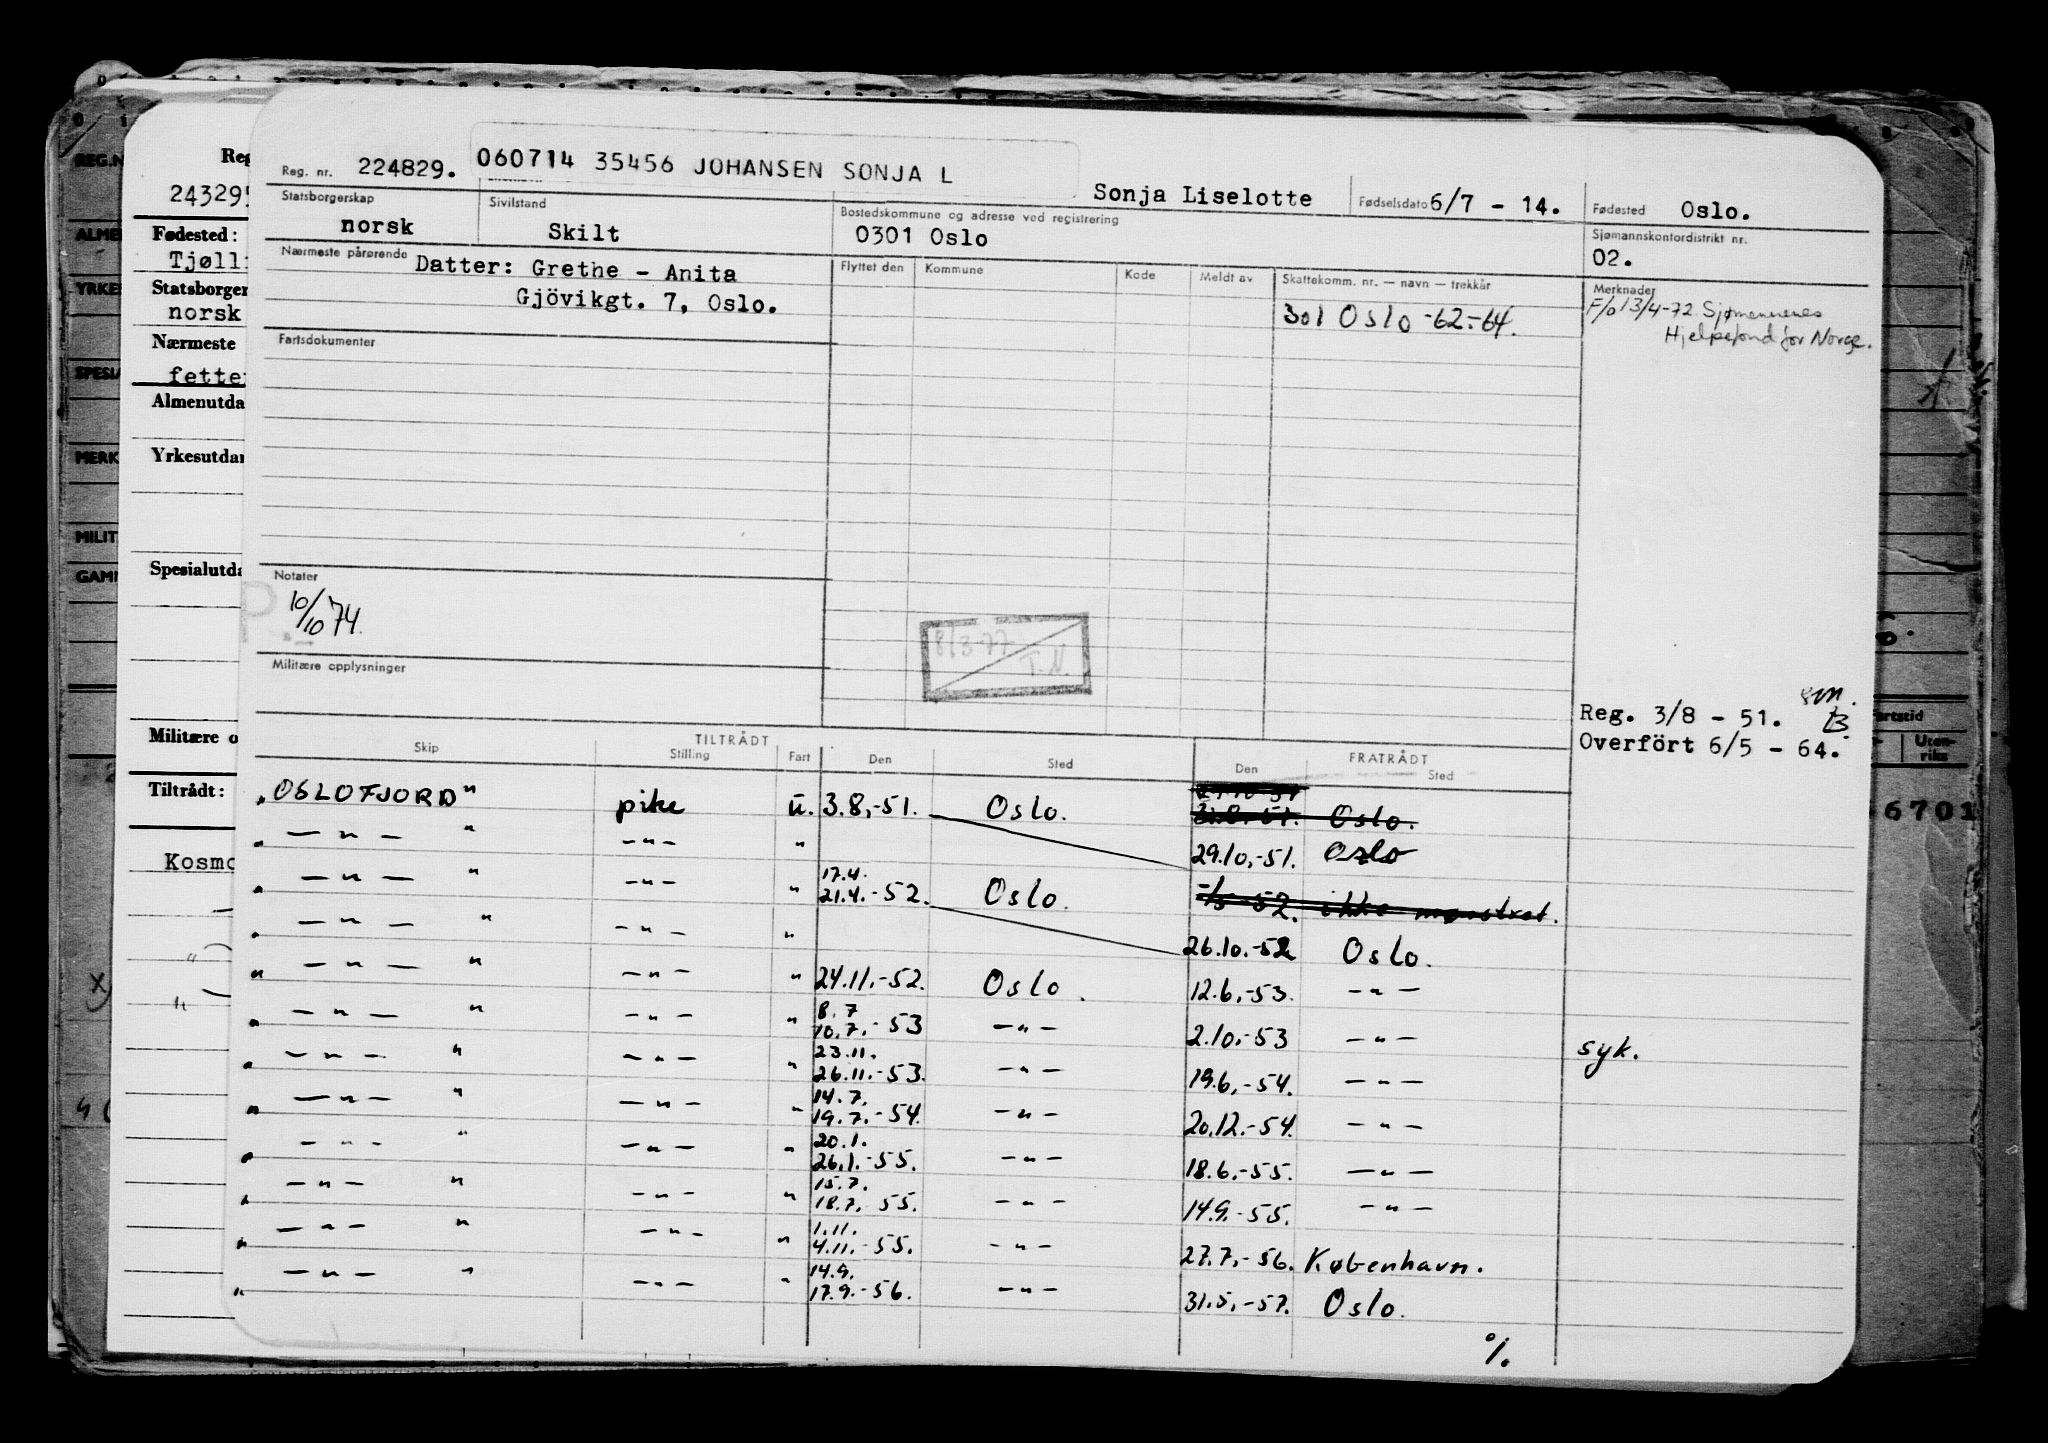 Reg. nr. 224829. 060714 35456 JOHANSEN SONJA L Sonja Liselotte Fødselsdato 6/7 - 14. Fødested Oslo.
Statsborgerskap norsk Sivilstand Skilt Bostedskommune og adresse ved registrering 0301 Oslo Sjømannskontordistrikt nr. 02.
Nærmeste pårørende Datter: Grethe - Anita
Gjövikgt. 7, Oslo.
Flyttet den Kommune Kode Meldt av Skattekomm. nr. — navn — trekkår Merknader
301 Oslo -62-64.
F/o 13/4-72 Sjømennenes
Hjelpefond for Norge.
Fartsdokumenter
Notater
10/10 74.
8/3-77
T.N.
Militære opplysninger
Reg. 3/8 - 51.
Overfört 6/5 - 64.
TILTRÅDT FRATRÅDT
Skip Stilling Fart Den Sted Den Sted
"OSLOFJORD" pike u. 3.8.-51. Oslo. 31.8.-51. Oslo.
" — " — " — " — " 29.10.-51. Oslo
" — " — " — " — " 17.4.
21.4.-52. Oslo. 52. ikke mønstret.
" — " — " — " — " 26.10.-52 Oslo.
" — " — " — " — " 24.11.-52. Oslo. 12.6.-53. — " —
" — " — " — " — " 8.7
10.7.-53 — " — 2.10.-53 — " — syk.
" — " — " — " — " 23.11.
26.11.-53. — " — 19.6.-54. — " —
" — " — " — " — " 14.7.
19.7.-54. — " — 20.12.-54. — " —
" — " — " — " — " 20.1.
26.1.-55. — " — 18.6.-55. — " —
" — " — " — " — " 15.7.
18.7.-55. — " — 14.9.-55. — " —
" — " — " — " — " 1.11.
4.11.-55. — " — 27.7.-56. København.
" — " — " — " — " 14.9.
17.9.-56. — " — 31.5.-57. Oslo.
%.
Reg
243295
Fødested:
Tjøll
Statsborger
norsk
Nærmeste
fette
Almenutda
Yrkesutdan
Spesialutda
Militære o
Tiltrådt:
Kosmo
REG.N
ALME
YRKES
SPESIA
MERK
MILIT
GAM
artstid
Uten-
riks
6701